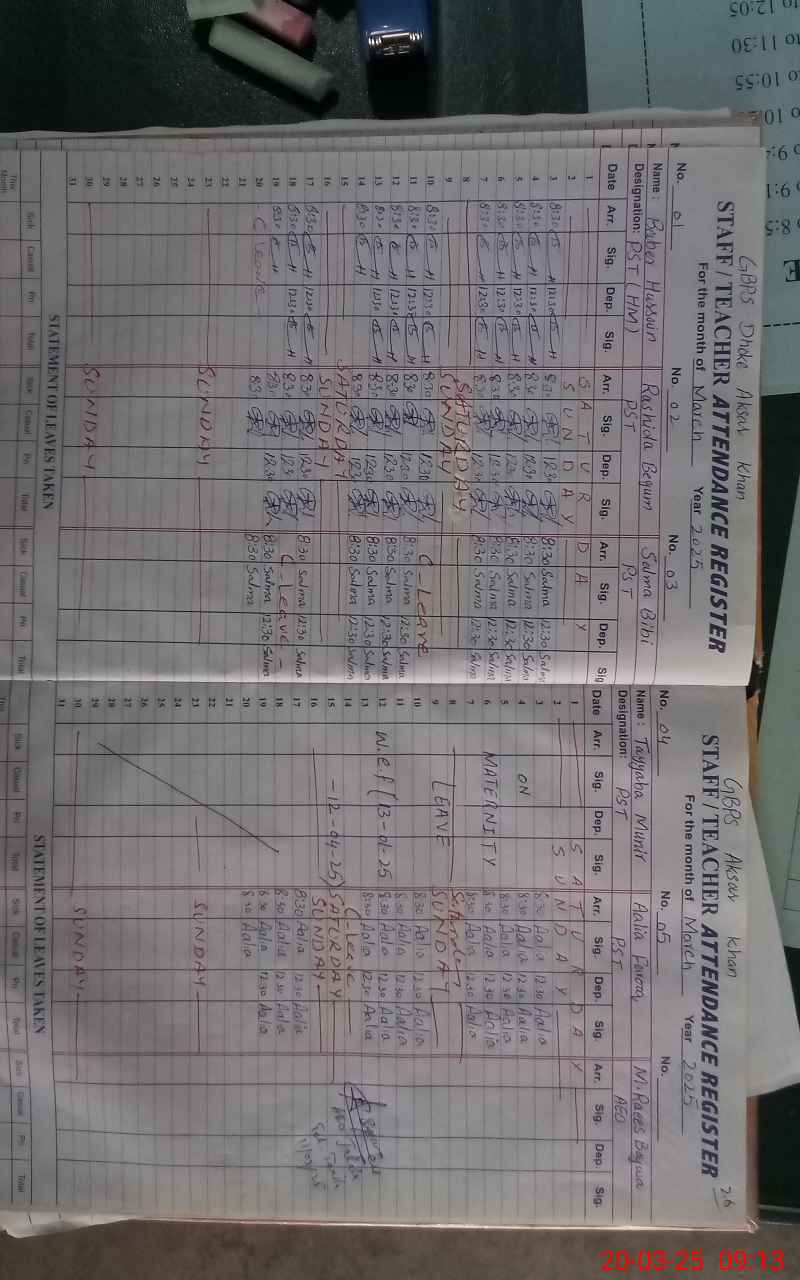 GBPS Dhoke Aksar Khan
STAFF / TEACHER ATTENDANCE REGISTER
For the month of March Year 2025
No. 01 No. 02 No. 03
Name: Baber Hussain Rashida Begum Salma Bibi
Designation: PST (HM) PST PST
Date Arr. Sig. Dep. Sig. Arr. Sig. Dep. Sig. Arr. Sig. Dep. Sig
1 SATURDAY
2 SUNDAY
3 8:30 12:30 8:30 12:30 8:30 Salma 12:30 Salma
4 8:30 12:30 8:30 12:30 8:30 Salma 12:30 Salma
5 8:30 12:30 8:30 12:30 8:30 Salma 12:30 Salma
6 8:30 12:30 8:30 12:30 8:30 Salma 12:30 Salma
7 8:30 12:30 8:30 12:30 8:30 Salma 12:30 Salma
8 SATURDAY
9 SUNDAY
10 8:30 12:30 8:30 12:30 C-Leave
11 8:30 12:30 8:30 12:30 8:30 Salma 12:30 Salma
12 8:30 12:30 8:30 12:30 8:30 Salma 12:30 Salma
13 8:30 12:30 8:30 12:30 8:30 Salma 12:30 Salma
14 8:30 8:30 12:30 8:30 Salma 12:30 Salma
15 SATURDAY
16 SUNDAY
17 8:30 12:30 8:30 12:30 8:30 Salma 12:30 Salma
18 8:30 12:30 8:30 12:30 C-Leave
19 8:30 8:30 12:30 8:30 Salma 12:30 Salma
20 C Leave 8:30 8:30 Salma
21
22
23 SUNDAY
24
25
26
27
28
29
30 SUNDAY
31
STATEMENT OF LEAVES TAKEN
Sick Casual Pri Total Sick Casual Pri Total Sick Casual Pri Total
This Month
GBPS Aksar Khan
26
STAFF / TEACHER ATTENDANCE REGISTER
For the month of March Year 2025
No. 04 No. 05 No.
Name: Tayyaba Munir Aalia M. Raees Bajwa
Designation: PST PST AEO
Date Arr. Sig. Dep. Sig. Arr. Sig. Dep. Sig. Arr. Sig. Dep. Sig.
1 SATURDAY
2 SUNDAY
3 8:30 Aalia 12:30 Aalia
4 ON 8:30 Aalia 12:30 Aalia
5 8:30 Aalia 12:30 Aalia
6 MATERNITY 8:30 Aalia 12:30 Aalia
7 8:30 Aalia 12:30 Aalia
8 Saturday
9 LEAVE SUNDAY
10 8:30 Aalia 12:30 Aalia
11 8:30 Aalia 12:30 Aalia
12 w.e.f (13-01-25 8:30 Aalia 12:30 Aalia
13 8:30 Aalia 12:30 Aalia
14 C-Leave
15 -12-04-25) SATURDAY
16 SUNDAY
17 8:30 Aalia 12:30 Aalia
18 8:30 Aalia 12:30 Aalia
19 8:30 Aalia 12:30 Aalia
20 8:30 Aalia
21
22
23 SUNDAY
24
25
26
27
28
29
30 SUNDAY
31
STATEMENT OF LEAVES TAKEN
Sick Casual Pri Total Sick Casual Pri Total Sick Casual Pri Total
to 12:05
to 11:30
to 10:55
20-03-25 09:13